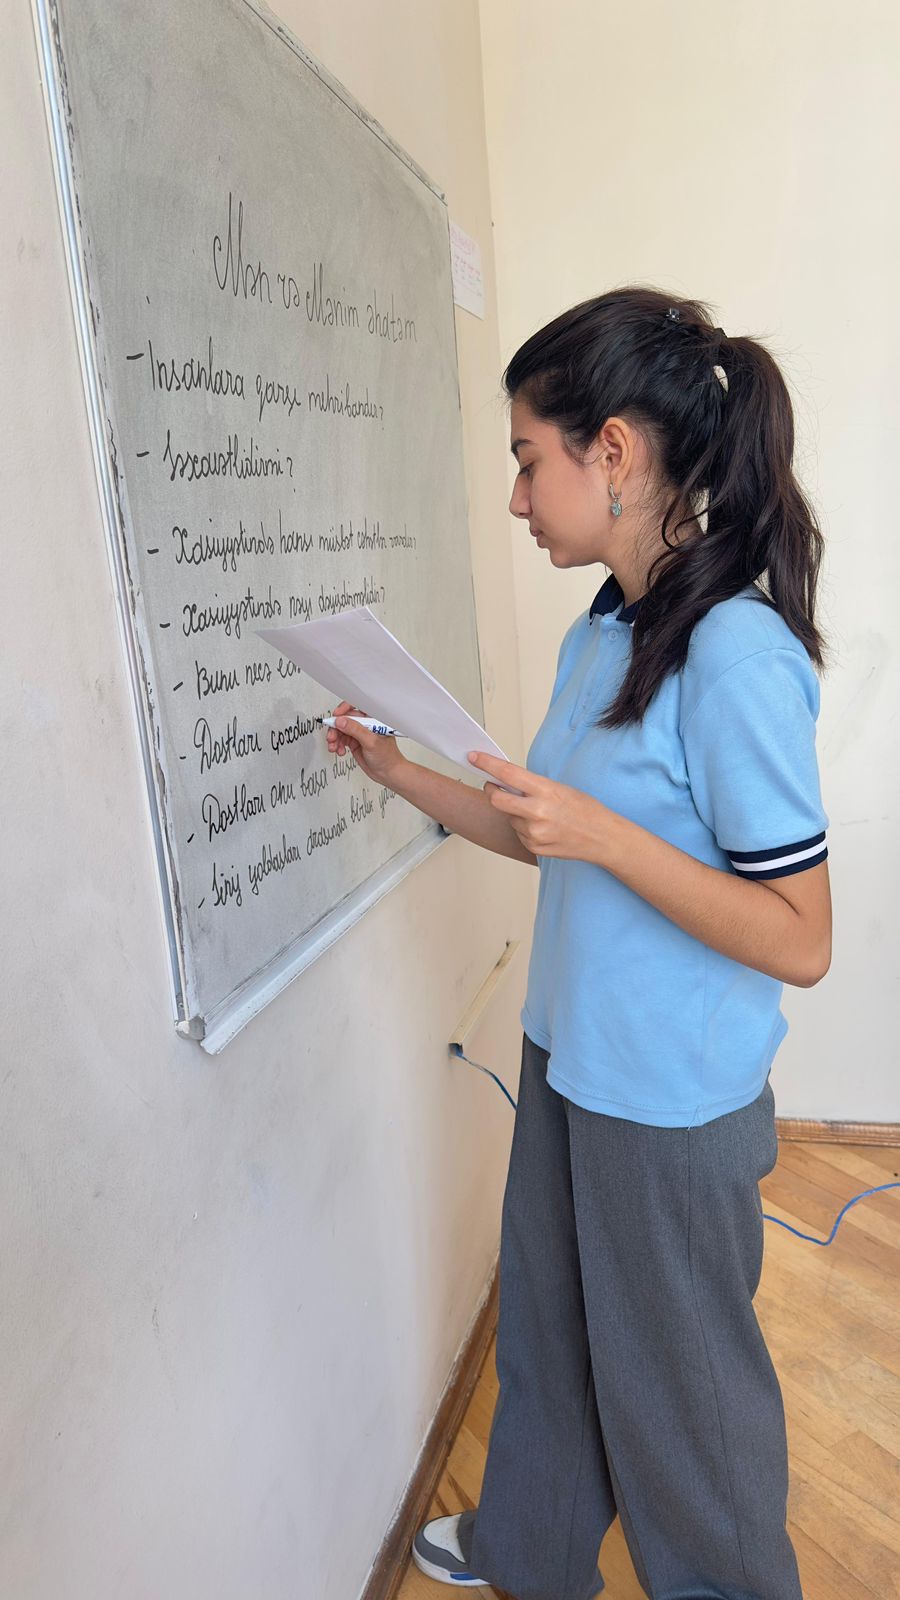 Mən və Mənim əhatəm
- İnsanlara qarşı mehribandır?
- Səxavətlidirmi?
- Xasiyyətində hansı müsbət cəhətlər vardır?
- Xasiyyətində nəyi dəyişdirməlidir?
- Bunu necə
- Dostları çoxdurmu?
- Dostları onu başa
- Sinif yoldaşları arasında birlik
B-217